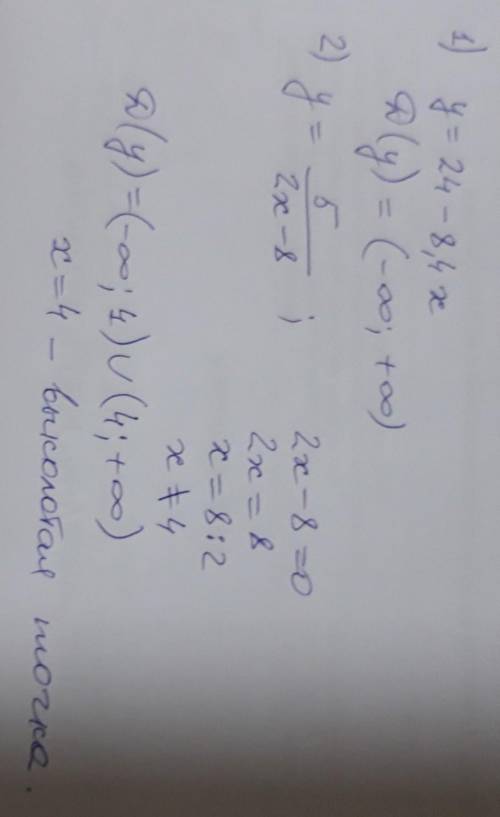 1) y = 24 - 8,4x
D(y) = (-∞; +∞)
2) y = 5/(2x-8) ;
2x - 8 = 0
2x = 8
x = 8:2
x ≠ 4
D(y) = (-∞; 4) ∪ (4; +∞)
x = 4 - выколотая точка.